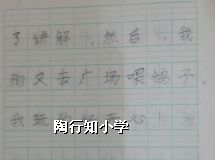 了讲解,然后,我
们又去广场喂鸽子.
我玩
心!
陶行知小学